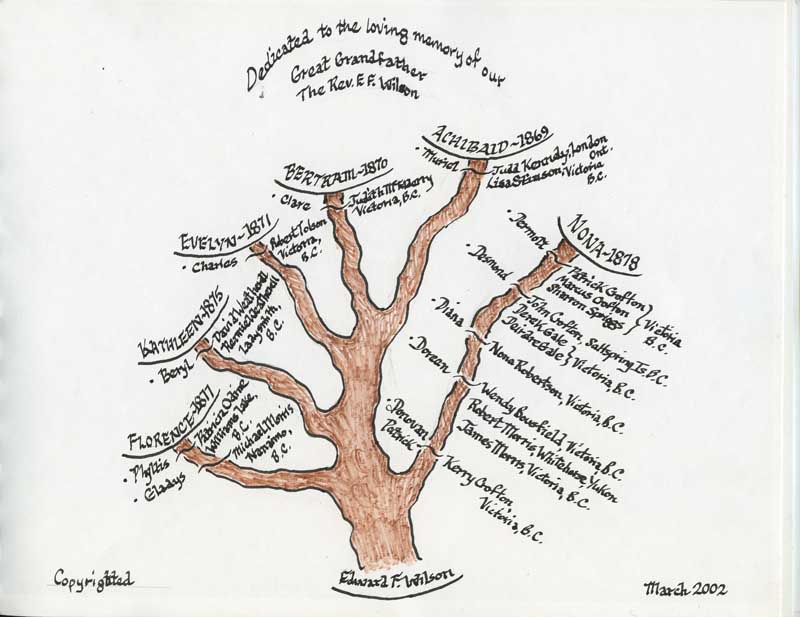 Dedicated to the loving memory of our
Great Grandfather
The Rev. E F. Wilson
ACHIBALD~1869
• Muriel
Judd Kennedy, London
Ont.
Lisa Stinson, Victoria
B.C.
BERTRAM~1870
• Clare
Victoria, B.C.
EVELYN~1871
• Charles
Robert Tolson
Victoria,
B.C.
KATHLEEN~1875
• Beryl
Ladysmith,
B.C.
FLORENCE~1877
• Phyllis
• Gladys
Williams Lake,
B.C.
Michael Morris
Nanaimo,
B.C.
NONA~1878
• Dermott
Patrick Crofton
Marcus Crofton
Sharon Spriggs
Victoria
B.C.
• Desmond
John Crofton, Saltspring Is. B.C.
Derek Gale
Deirdre Gale
Victoria, B.C.
• Diana
Nona Robertson, Victoria, B.C.
• Doreen
Wendy Bousfield, Victoria, B.C.
Robert Morris, Whitehorse, Yukon
James Morris, Victoria, B.C.
• Donovan
Patrick
Kerry Crofton
Victoria, B.C.
Edward F. Wilson
Copyrighted
March 2002